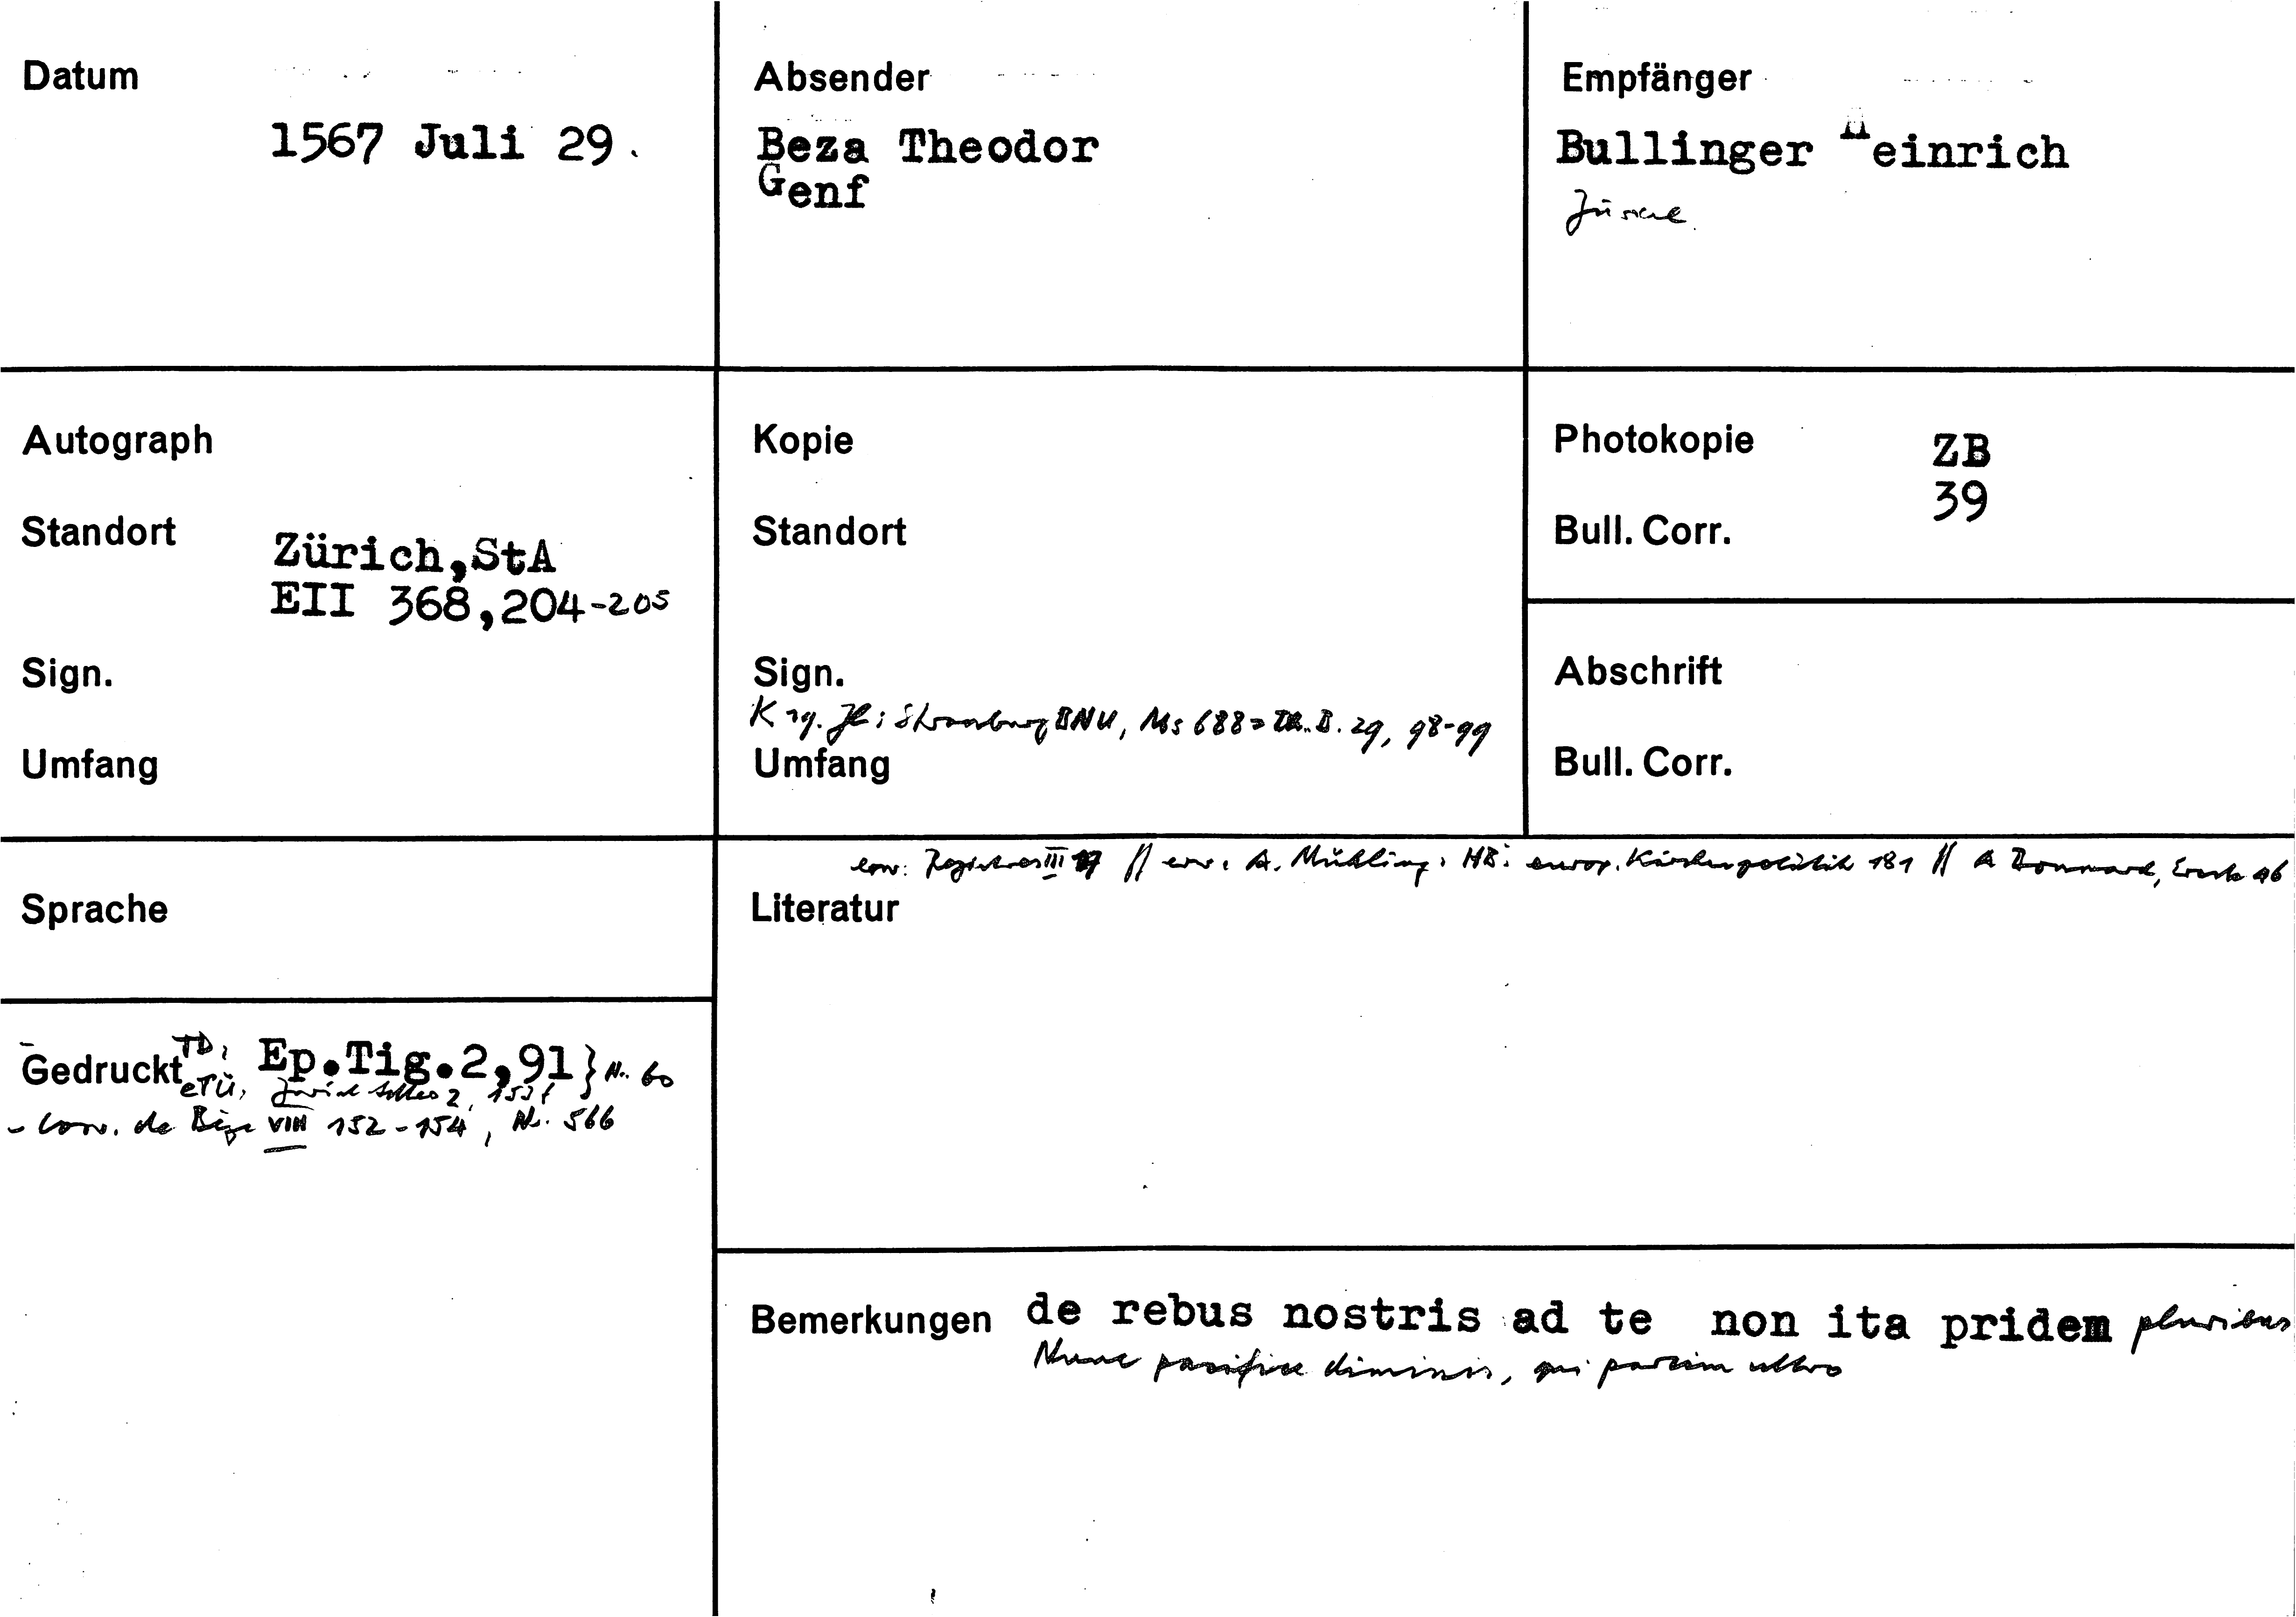 Datum
1567 Juli 29.
Absender
Beza Theodor
Genf
Empfänger
Bullinger Heinrich
Zürich
Autograph
Standort
Zürich,StA
EII 368,204-205
Sign.
Umfang
Kopie
Standort
Sign.
Strassburg BNU, Ms 688 = Th. B. 29, 98-99
Umfang
Photokopie ZB
39
Bull. Corr.
Abschrift
Bull. Corr.
Sprache
Registres III // A. Mühling, HB: europ. Kirchenpolitik 181 //
Literatur
Gedruckt TD: Ep.Tig.2,91 } Nr. 60
eTÜ, Zurich Letters 2, 153f
- Corr. de Bèze VIII 152-154, Nr. 566
Bemerkungen de rebus nostris ad te non ita pridem pluribus
Nunc qui partim ultro